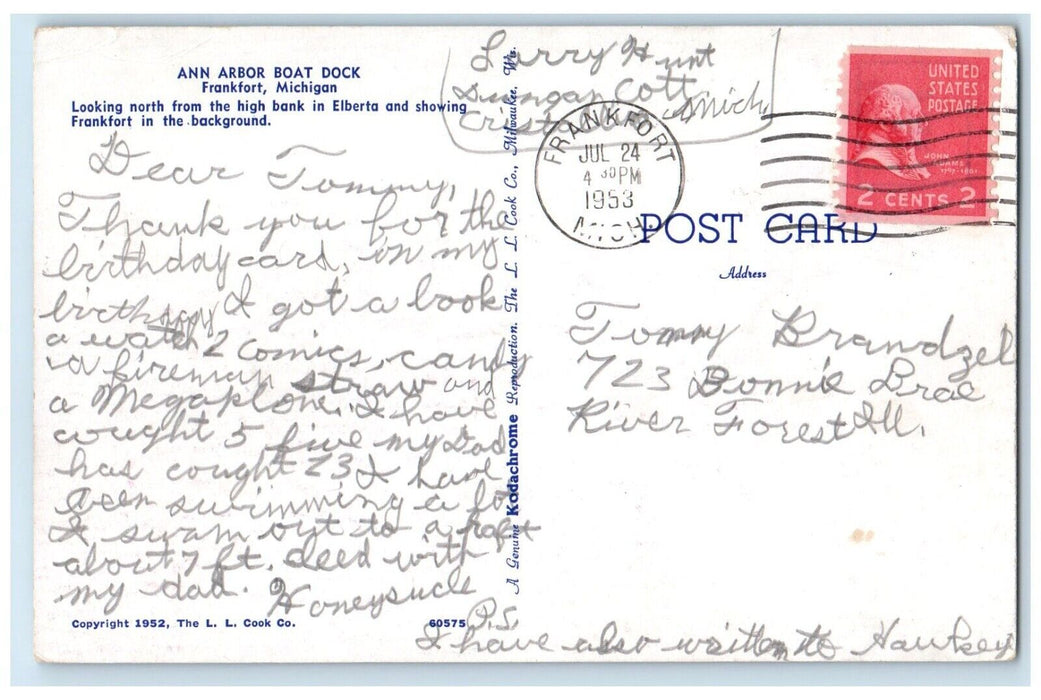 ANN ARBOR BOAT DOCK
Frankfort, Michigan
Looking north from the high bank in Elberta and showing
Frankfort in the background.
Dear Tommy,
Thank you for the
birthday card, on my
birthday I got a book
a watch 2 comics, candy
a fireman straw and
a Megaphone. I have
cought 5 five my Dad
has cought 23 I have
been swimming a lot
I swam out to a raft
about 7 ft. deed with
my dad. Honeysucle
P.S.
I have also written to Hawkey
Copyright 1952, The L. L. Cook Co.
60575
A Genuine Kodachrome Reproduction. The L. L. Cook Co., Milwaukee, Wis.
Larry Hunt
Cott
Mich.
FRANKFORT
JUL 24
4 30 PM
1953
MICH.
UNITED
STATES
POSTAGE
JOHN ADAMS
1797-1801
2 CENTS 2
POST CARD
Address
Tommy Brandzel
723 Bonnie Brae
River Forest Ill.